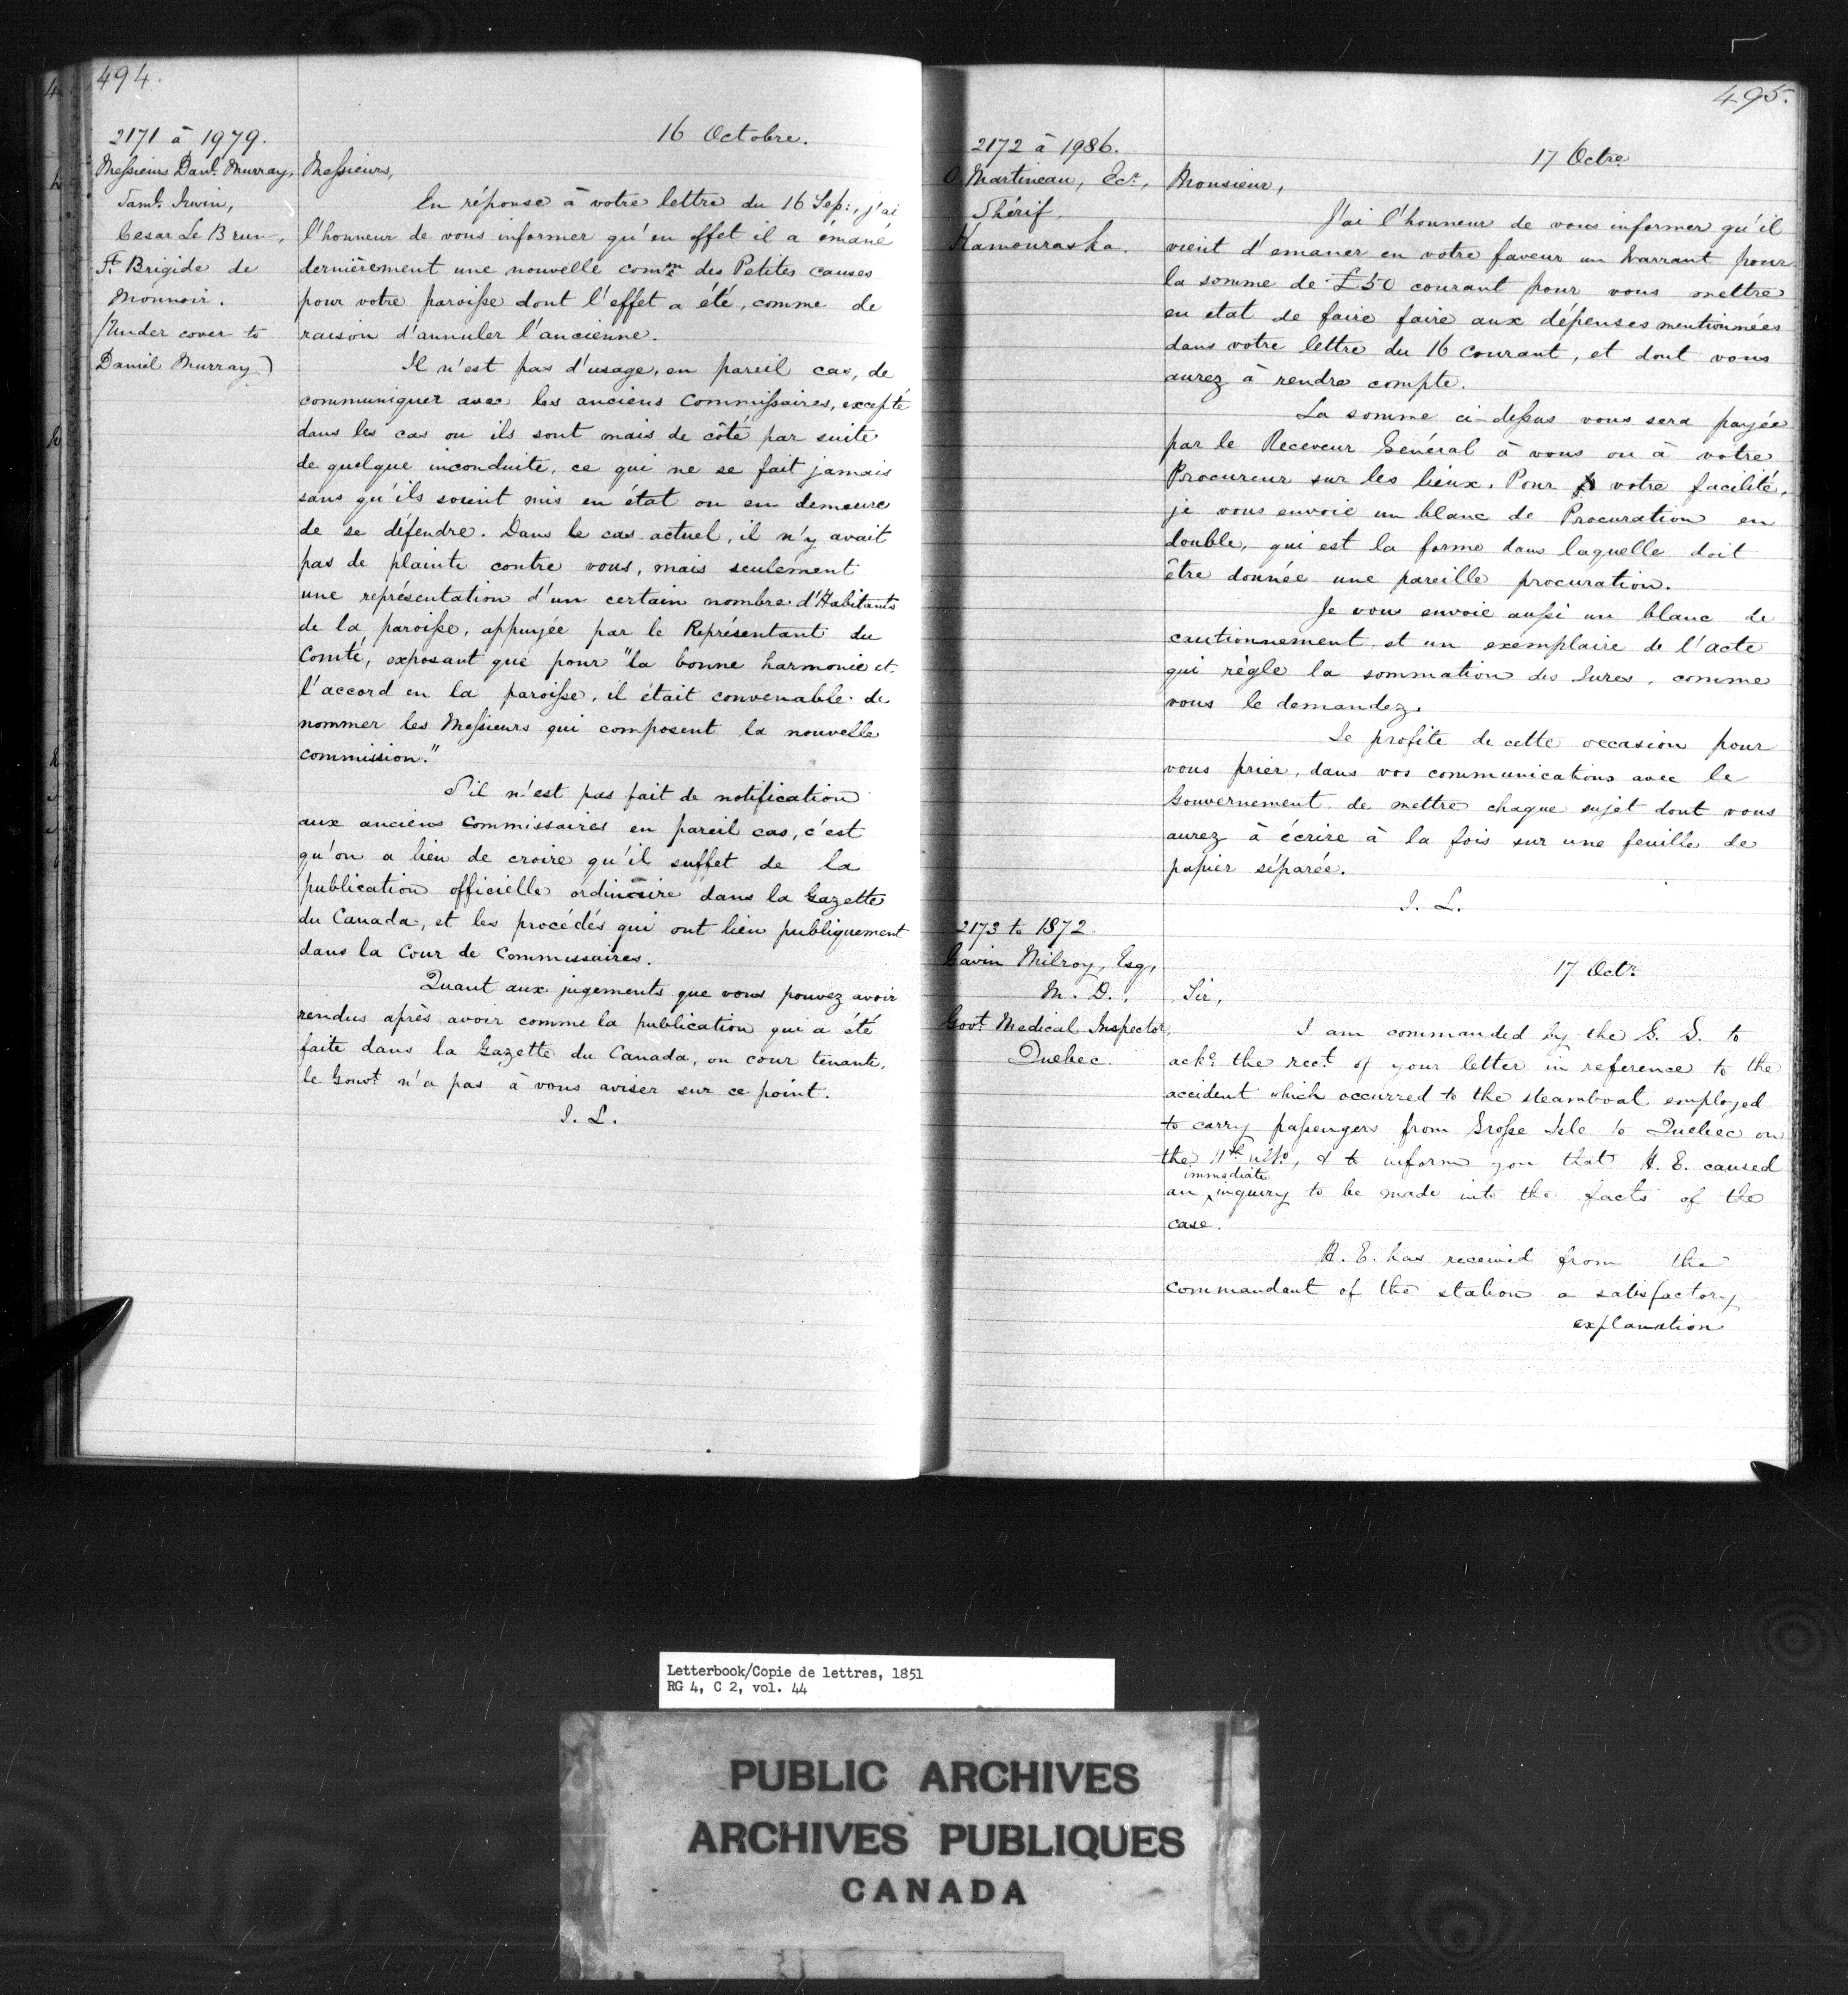 494.
2171 à 1979.
Messieurs Danl. Murray,
Saml. Irwin,
Cesar Le Brun,
St. Brigide de
Monnoir.
(Under cover to
Daniel Murray)
16 Octobre.
Messieurs,
En réponse à votre lettre du 16 Sep:, j'ai
l'honneur de vous informer qu'en effet il a émané
dernièrement une nouvelle comm: des Petites causes
pour votre paroisse dont l'effet a été, comme de
raison d'annuler l'ancienne.
Il n'est pas d'usage, en pareil cas, de
communiquer avec les anciens Commissaires, excepté
dans les cas ou ils sont mais de côté par suite
de quelque inconduite, ce qui ne se fait jamais
sans qu'ils soient mis en état ou en demeure
de se défendre. Dans le cas actuel, il n'y avait
pas de plainte contre vous, mais seulement
une représentation d'un certain nombre d'Habitants
de la paroisse, appuyée par le Représentant du
Comté, exposant que pour "la bonne harmonie et
l'accord en la paroisse, il était convenable de
nommer les Messieurs qui composent la nouvelle
commission."
S'il n'est pas fait de notification
aux anciens Commissaires en pareil cas, c'est
qu'on a lieu de croire qu'il suffet de la
publication officielle ordinaire dans la Gazette
du Canada, et les procédés qui ont lieu publiquement
dans la Cour de Commissaires.
Quant aux jugements que vous pouvez avoir
rendus après avoir comme la publication qui a été
faite dans la Gazette du Canada, ou cour tenante,
le Gouvt. n'a pas à vous aviser sur ce point.
I. L.
495.
2172 à 1986.
O. Martineau, Ecr.,
Shérif.
Kamouraska.
17 Octre
Monsieur,
J'ai l'honneur de vous informer qu'il
vient d'emaner en votre faveur un Warrant pour
la somme de £50 courant pour vous mettre
en etat de faire faire aux dépenses mentionnées
dans votre lettre du 16 courant, et dont vous
aurez à rendre compte.
La somme ci-dessus vous sera payée
par le Receveur Général à vous ou à votre
Procureur sur les lieux. Pour votre facilité,
je vous envoie un blanc de Procuration en
double, qui est la forme dans laquelle doit
être donnée une pareille procuration.
Je vous envoie aussi un blanc de
cautionnement et un exemplaire de l'acte
qui règle la sommation des Jures, comme
vous le demandez.
Je profite de cette occasion pour
vous prier, dans vos communications avec le
Gouvernement de mettre chaque sujet dont vous
aurez à écrire à la fois sur une feuille de
papier séparée.
I. L.
2173 to 1872.
Gavin Milroy, Esq,
M. D.,
Govt. Medical Inspector,
Quebec.
17 Octr.
Sir,
I am commanded by the G. G. to
acke. the rect. of your letter in reference to the
accident which occurred to the steamboat employed
to carry passengers from Grosse Isle to Quebec on
the 11th ulto., & to inform you that H. E. caused
immediate
an inquiry to be made into the facts of the
case.
H. E. has received from the
Commandant of the station a satisfactory
explanation
Letterbook/Copie de lettres, 1851
RG 4, C 2, vol. 44
PUBLIC ARCHIVES
ARCHIVES PUBLIQUES
CANADA